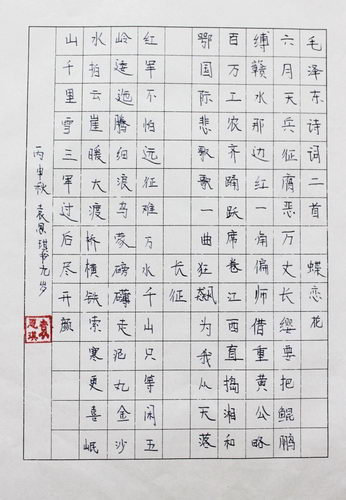 毛泽东诗词二首 蝶恋花
六月天兵征腐恶万丈长缨要把鲲鹏
缚赣水那边红一角偏师借重黄公略
百万工农齐踊跃席卷江西直捣湘和
鄂国际悲歌歌一曲狂飙为我从天落
长征
红军不怕远征难万水千山只等闲五
岭逶迤腾细浪乌蒙磅礴走泥丸金沙
水拍云崖暖大渡桥横铁索寒更喜岷
山千里雪三军过后尽开颜
丙申秋 袁恩琪书九岁
袁恩琪